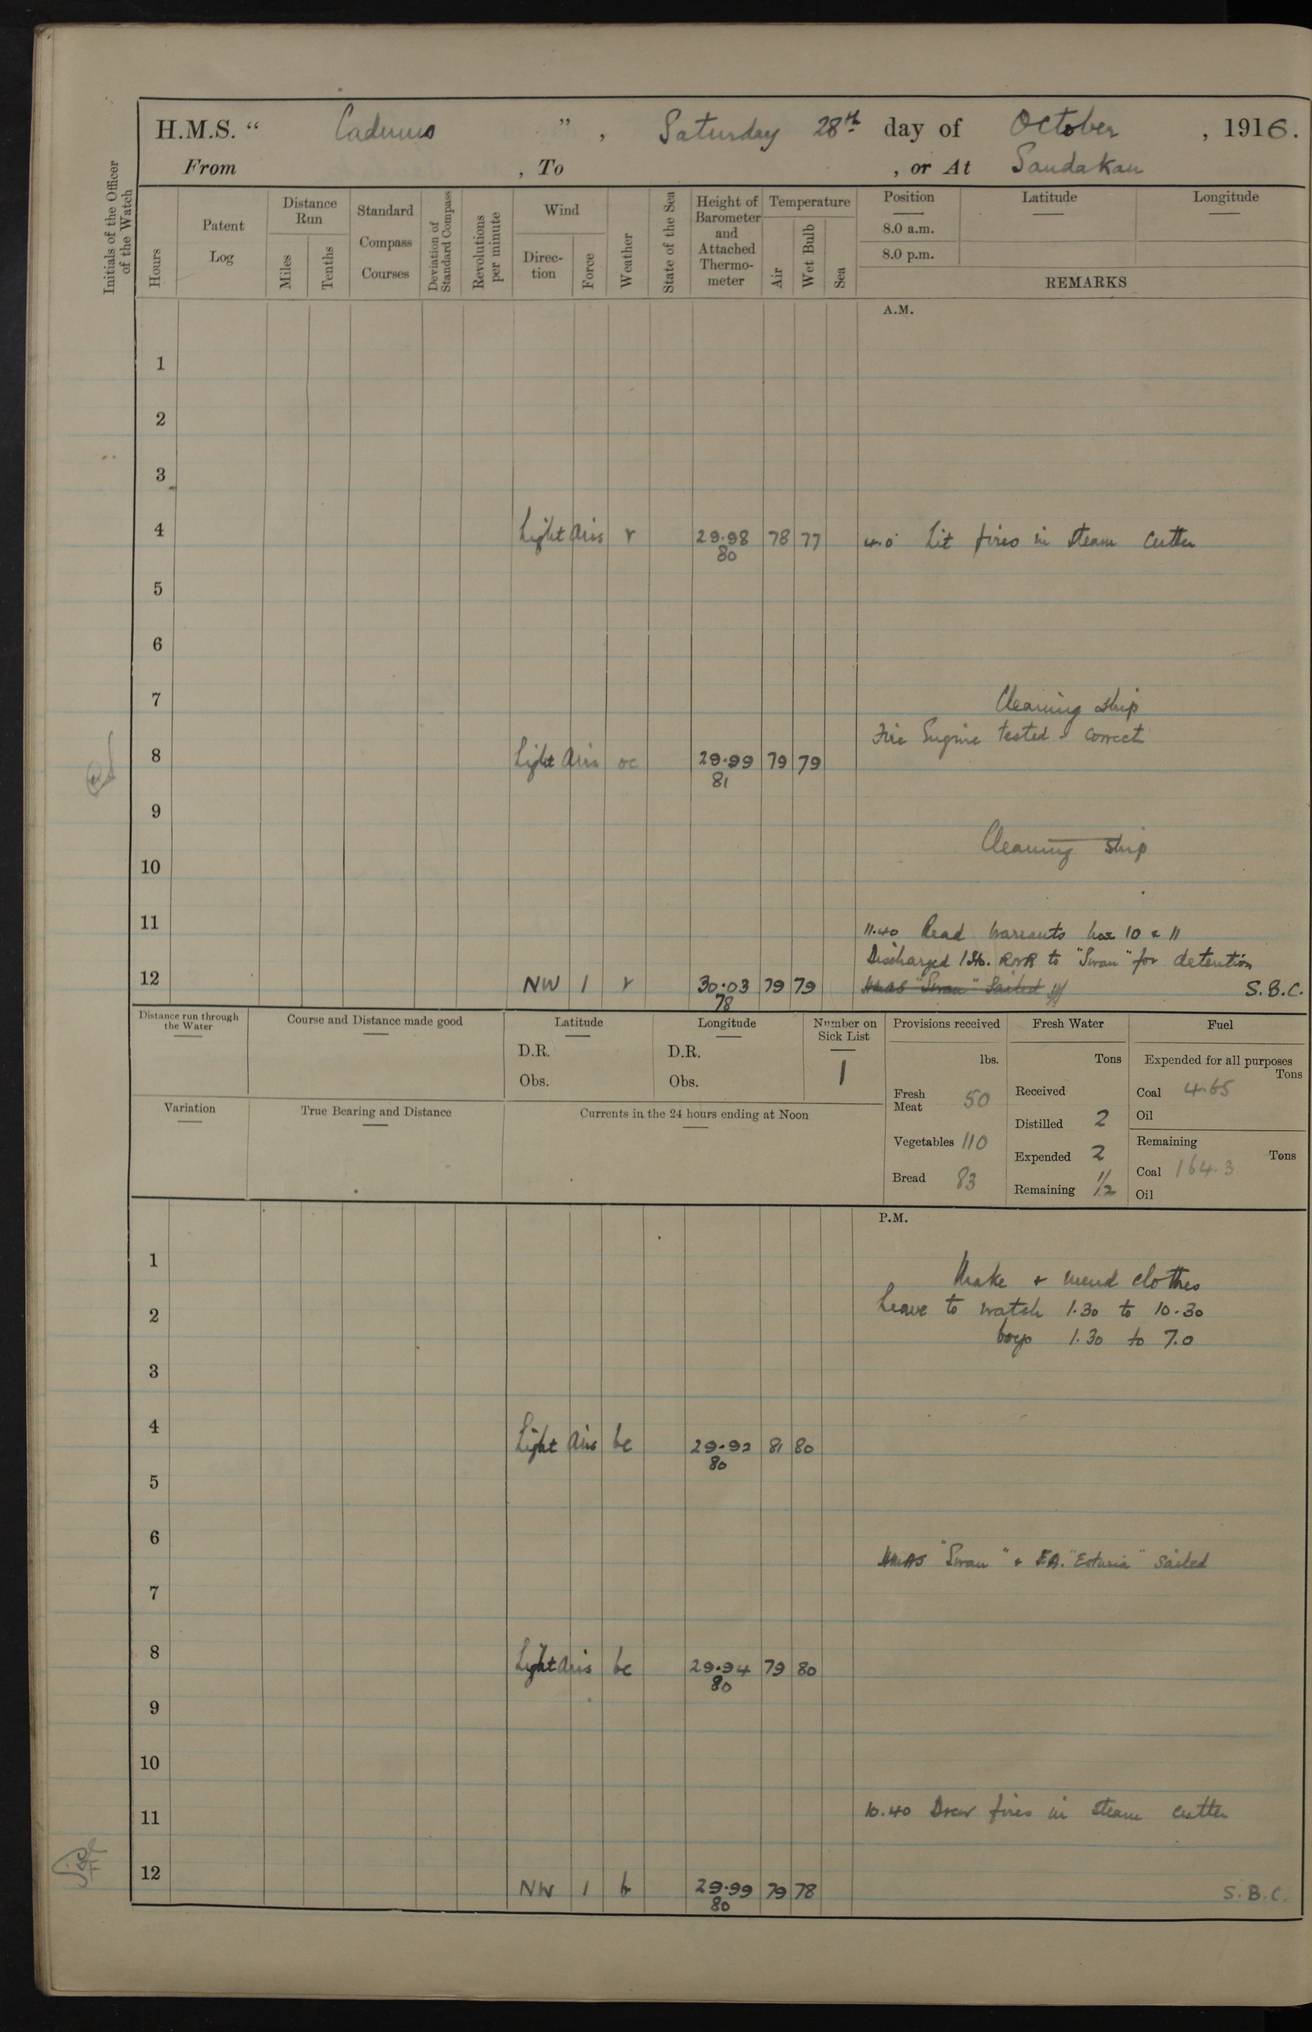 H.M.S. " Cadmus ", Saturday 28th day of October, 1916.
From , To , or At Sandakan
Initials of the Officer of the Watch
Hours
Patent Log
Distance Run
Miles
Tenths
Standard Compass Courses
Deviation of Standard Compass
Revolutions per minute
Wind
Direction
Force
Weather
State of the Sea
Height of Barometer and Attached Thermometer
Temperature
Air
Wet Bulb
Sea
Position
8.0 a.m.
8.0 p.m.
Latitude
Longitude
REMARKS
A.M.
1
2
3
4 Light airs r 29.98 78 77 4.0 Lit fires in steam cutter
80
5
6
7 Cleaning ship
Fire Engine tested & correct
8 Light airs oc 29.99 79 79
81
9
Cleaning ship
10
11 11.40 Read Warrants nos 10 & 11
Discharged 1 Sto. RNR to "Swan" for detention
12 NW 1 r 30.03 79 79 HMAS "Swan" Sailed S.B.C.
78
Distance run through the Water
Course and Distance made good
Latitude
D.R.
Obs.
Longitude
D.R.
Obs.
Number on Sick List
1
Variation
True Bearing and Distance
Currents in the 24 hours ending at Noon
Provisions received
lbs.
Fresh Meat 50
Vegetables 110
Bread 83
Fresh Water
Tons
Received
Distilled 2
Expended 2
Remaining 1/2
Fuel
Expended for all purposes
Tons
Coal 4.65
Oil
Remaining
Tons
Coal 164.3
Oil
P.M.
1 Make & mend clothes
2 Leave to watch 1.30 to 10.30
boys 1.30 to 7.0
3
4 Light airs bc 29.92 81 80
80
5
6 HMAS "Swan" & F.A. "Esturia" sailed
7
8 Light airs bc 29.94 79 80
80
9
10
11 10.40 Drew fires in steam cutter
12 NW 1 b 29.99 79 78
80
S.B.C.